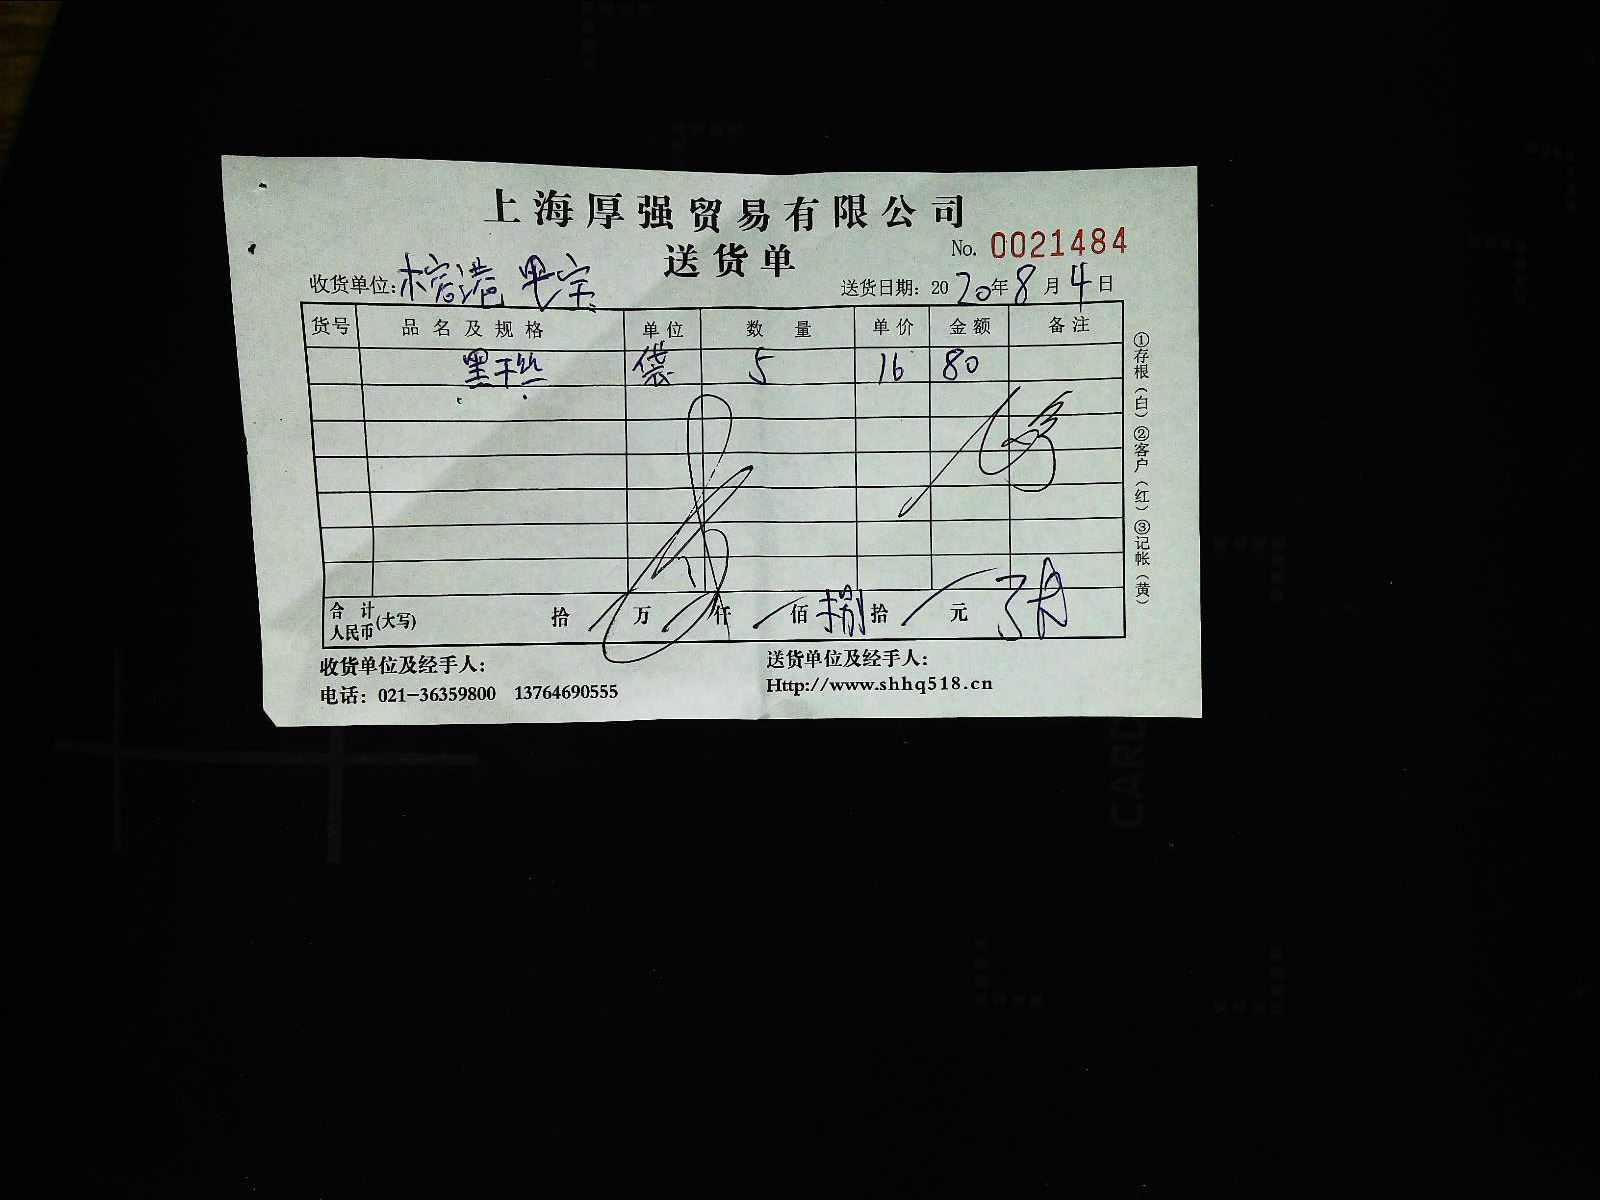 上海厚强贸易有限公司
送货单
No. 0021484
收货单位:
送货日期: 2020年8月4日
货号 品名及规格 单位 数量 单价 金额 备注
黑干丝 袋 5 16 80
合计人民币(大写) 拾 万 仟 佰 捌拾 元
收货单位及经手人:
送货单位及经手人:
电话: 021-36359800 13764690555
Http://www.shhq518.cn
①存根(白)②客户(红)③记帐(黄)
CARD